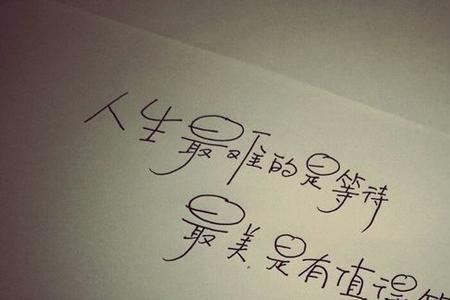 人生最难的是等待
最美是有值得